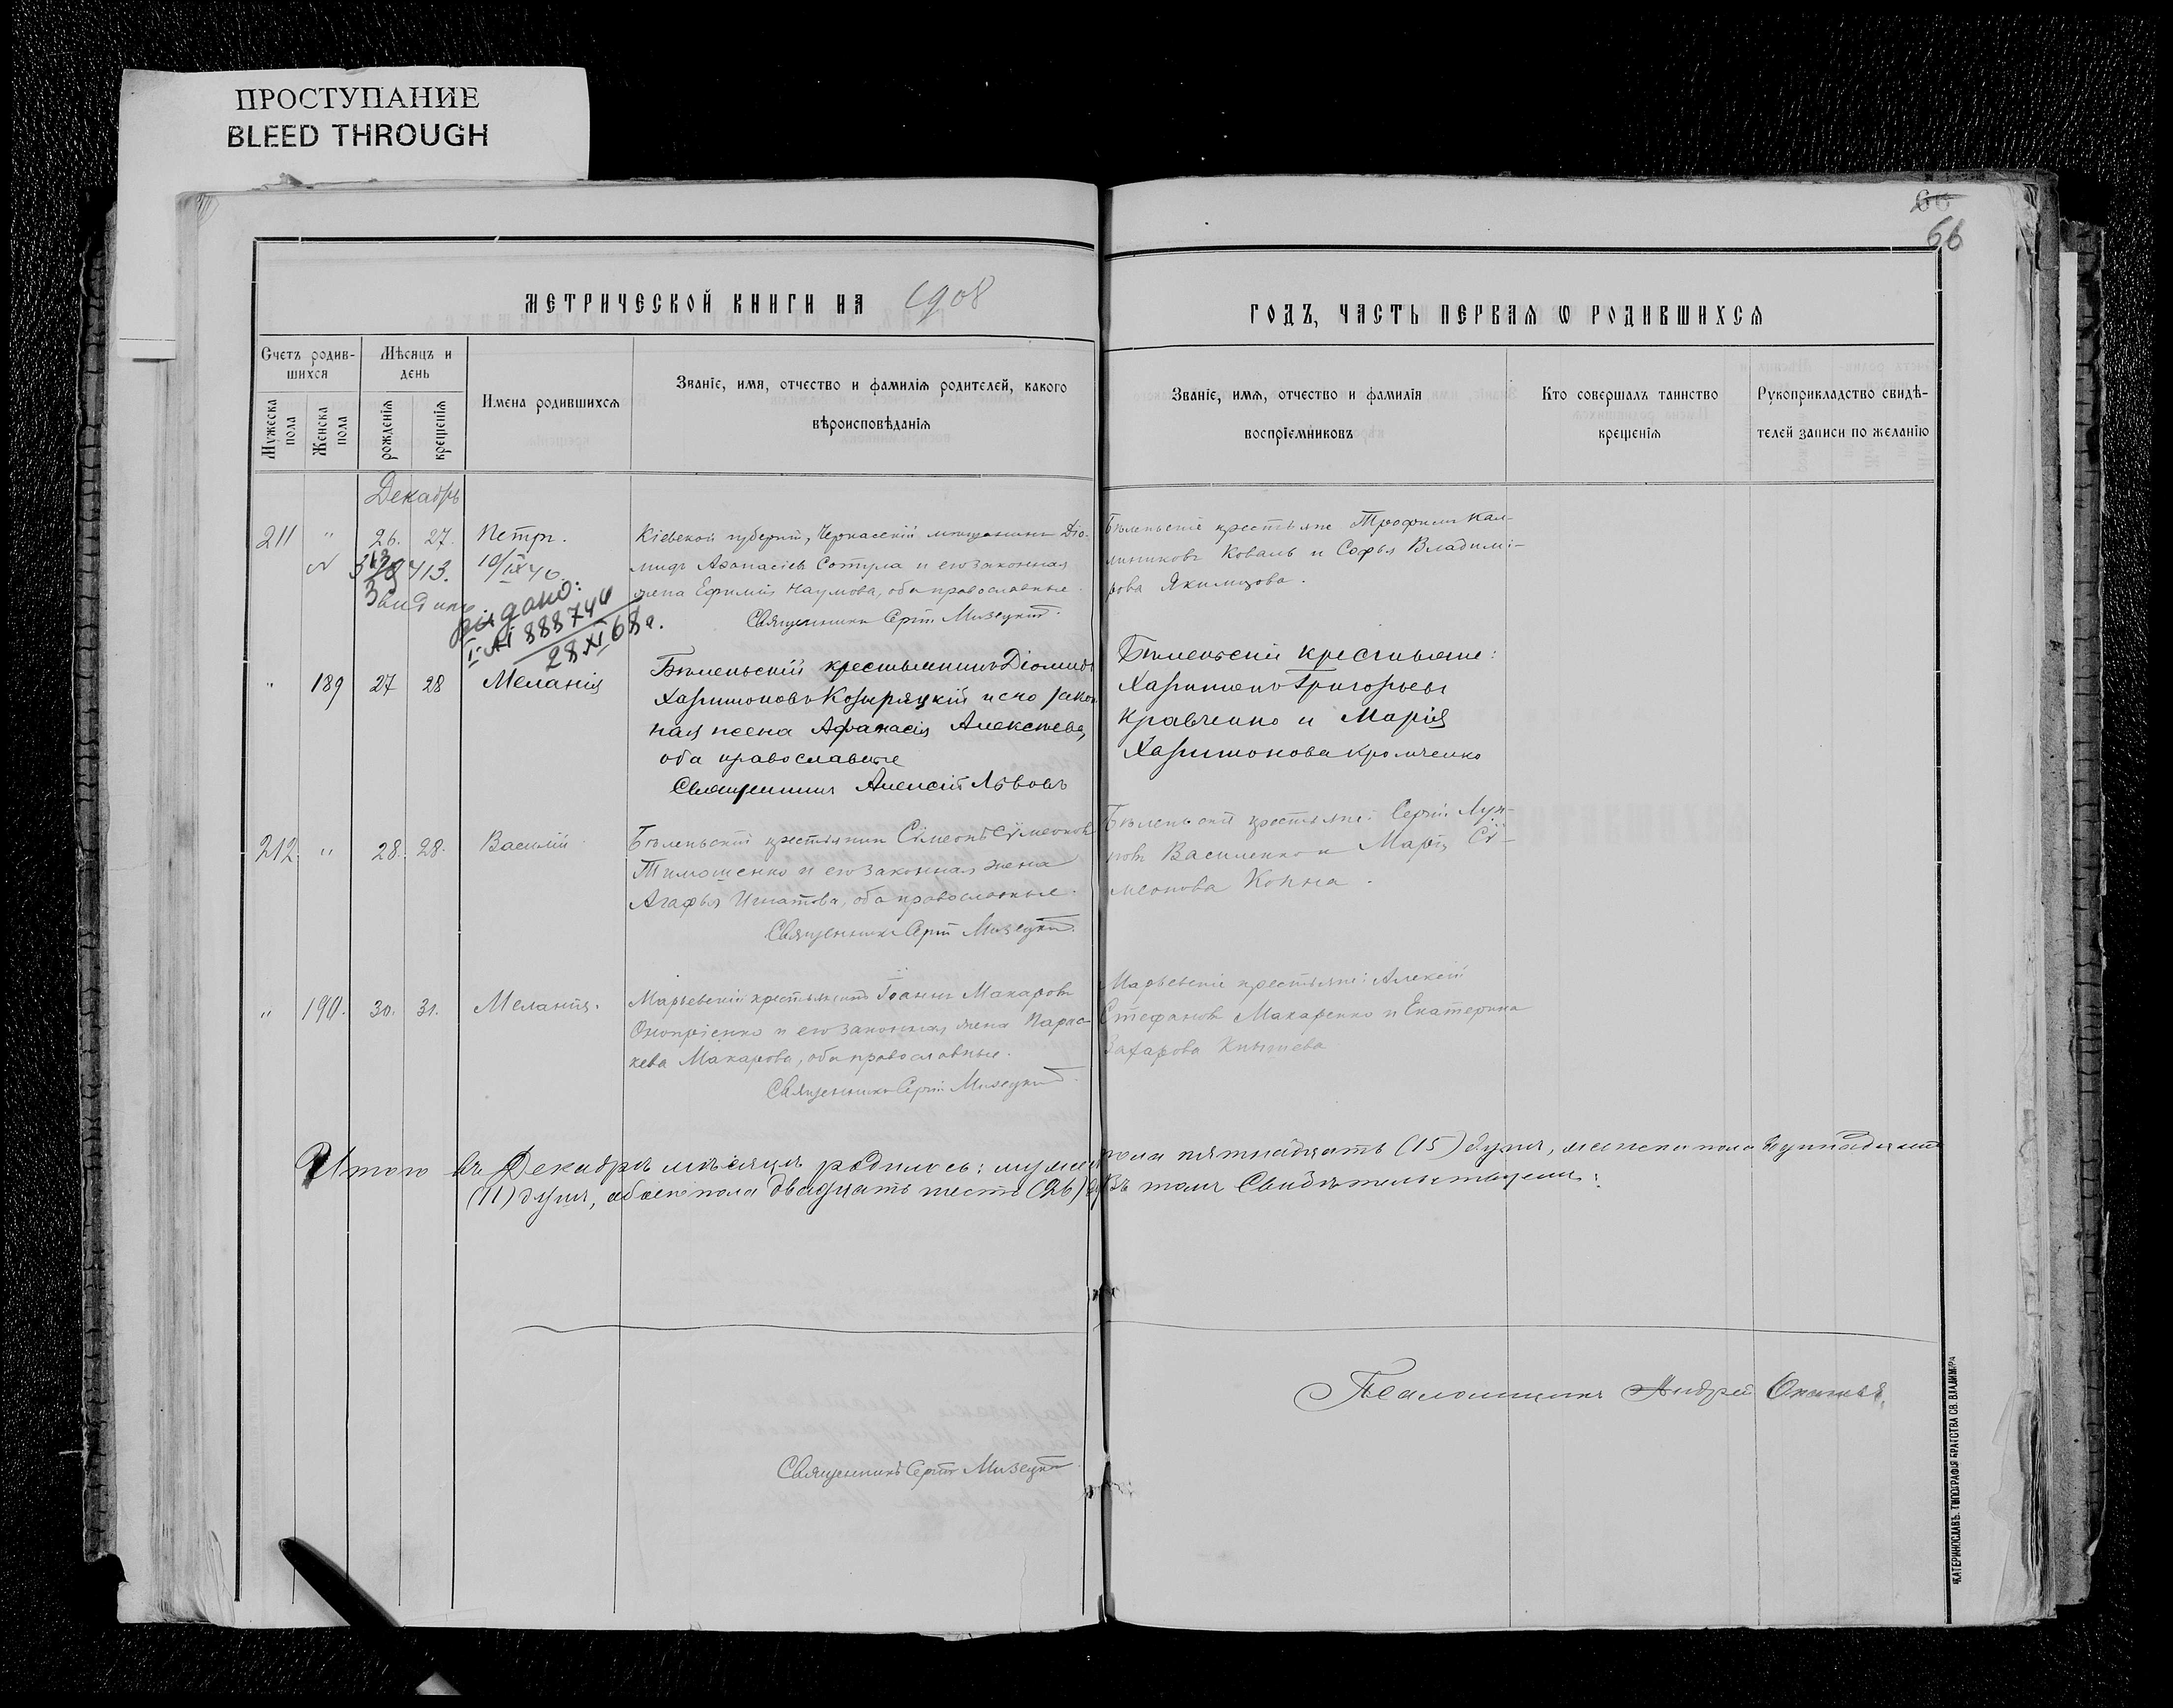 ПРОСТУПАНИЕ
BLEED THROUGH
66
66
МЕТРИЧЕСКОЙ КНИГИ НА 1908
ГОДЪ, ЧАСТЬ ПЕРВАЯ Ѡ РОДИВШИХСЯ
Счетъ родив-
шихся
Мужеска
пола
Женска
пола
Мѣсяцъ и
день
рожденїя
крещенїя
Имена родившихся
Званїе, имя, отчество и фамилїя родителей, какого
вѣроисповѣданїя
Званїе, имя, отчество и фамилїя
воспрїемниковъ
Кто совершалъ таинство
крещенїя
Рукоприкладство свидѣ-
телей записи по желанїю
Декабрь
211 " 26. 27. Петръ.
Кіевской губерніи, Черкасскій мѣщанинъ Діо-
мидъ Аѳанасіевъ Сотула и его законная
жена Ефимія Наумова, оба православные.
Священникъ Сергій Мизецкій.
Бѣленьскіе крестьяне Трофимъ Кал-
линиковъ Коваль и Софья Владимі-
рова Якимцова.
413. 10/IX 40.
888740
28 XI 68 г.
" 189 27 28 Меланія
Бѣленьскій крестьянинъ Діомидъ
Харитоновъ Козыряцкій и его закон
ная жена Афанасія Алексѣева,
оба православные
Священникъ Алексій Львовъ
Бѣленьскіе крестьяне:
Харитонъ Григорьевъ
Кравченко и Марія
Харитонова Кромченко
212. " 28. 28. Василій
Бѣленьскій крестьянинъ Сѵмеонъ Сѵмеоновъ
Тимошенко и его законная жена
Агафья Игнатова, оба православные.
Священникъ Сергій Мизецкій.
Бѣленьскіе крестьяне: Сергій Луп-
повъ Василенко и Марія Сѵ-
меонова Копна.
" 190. 30. 31. Меланія.
Марьевскій крестьянинъ Іоаннъ Макаровъ
Оноприенко и его законная жена Парас-
кева Макарова, оба православные.
Священникъ Сергій Мизецкій.
Марьевскіе крестьяне: Алексій
Стефановъ Макаренко и Екатерина
Захарова Кнышева
Итого въ Декабрѣ мѣсяцѣ родилось: мужск пола пятнадцать (15) душъ, женска пола одиннадцать
(11) душъ, обоего пола двадцать шесть (26) д Въ томъ Свидѣтельствуемъ:
Псаломщикъ Андрей
Священникъ Сергій Мизецкій
ЕКАТЕРИНОСЛАВЪ. ТИПОГРАФІЯ БРАТСТВА СВ. ВЛАДИМІРА